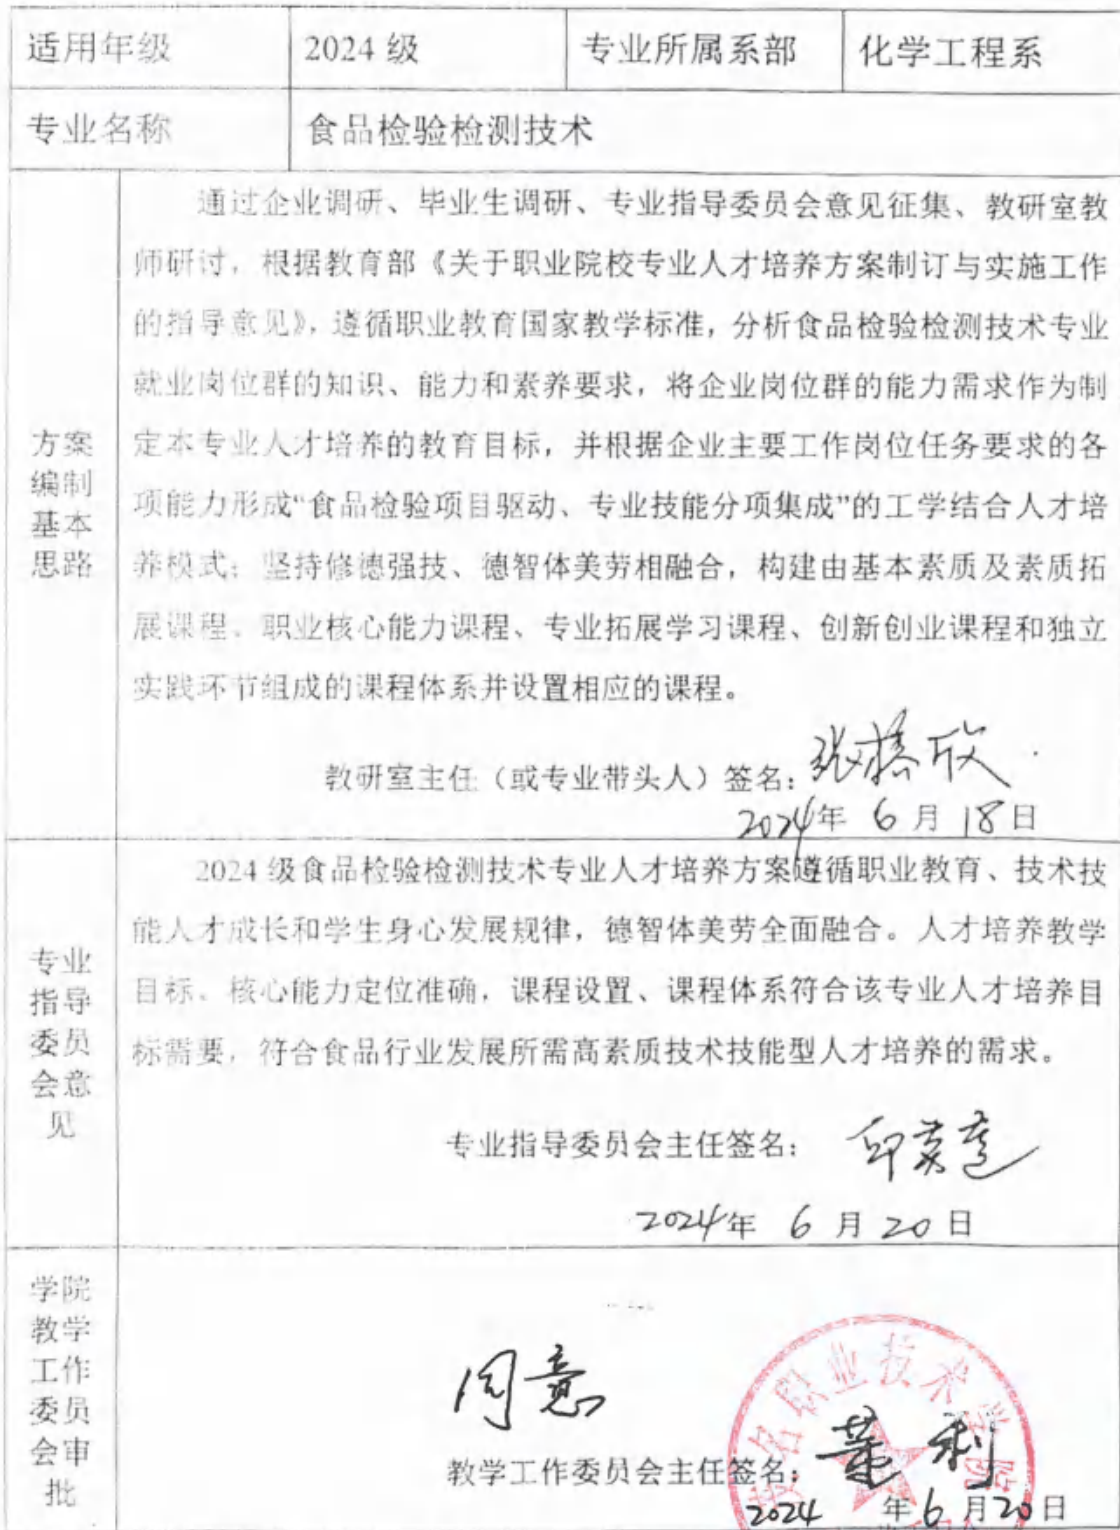 适用年级 2024 级 专业所属系部 化学工程系
专业名称 食品检验检测技术
方案
编制
基本
思路
通过企业调研、毕业生调研、专业指导委员会意见征集、教研室教
师研讨，根据教育部《关于职业院校专业人才培养方案制订与实施工作
的指导意见》，遵循职业教育国家教学标准，分析食品检验检测技术专业
就业岗位群的知识、能力和素养要求，将企业岗位群的能力需求作为制
定本专业人才培养的教育目标，并根据企业主要工作岗位任务要求的各
项能力形成“食品检验项目驱动、专业技能分项集成”的工学结合人才培
养模式；坚持修德强技、德智体美劳相融合，构建由基本素质及素质拓
展课程、职业核心能力课程、专业拓展学习课程、创新创业课程和独立
实践环节组成的课程体系并设置相应的课程。
教研室主任（或专业带头人）签名：
2024年 6 月 18日
专业
指导
委员
会意
见
2024 级食品检验检测技术专业人才培养方案遵循职业教育、技术技
能人才成长和学生身心发展规律，德智体美劳全面融合。人才培养教学
目标、核心能力定位准确，课程设置、课程体系符合该专业人才培养目
标需要，符合食品行业发展所需高素质技术技能型人才培养的需求。
专业指导委员会主任签名：
2024年 6 月 20 日
学院
教学
工作
委员
会审
批
同意
教学工作委员会主任签名：
2024 年 6 月 20 日
名职业技术学院